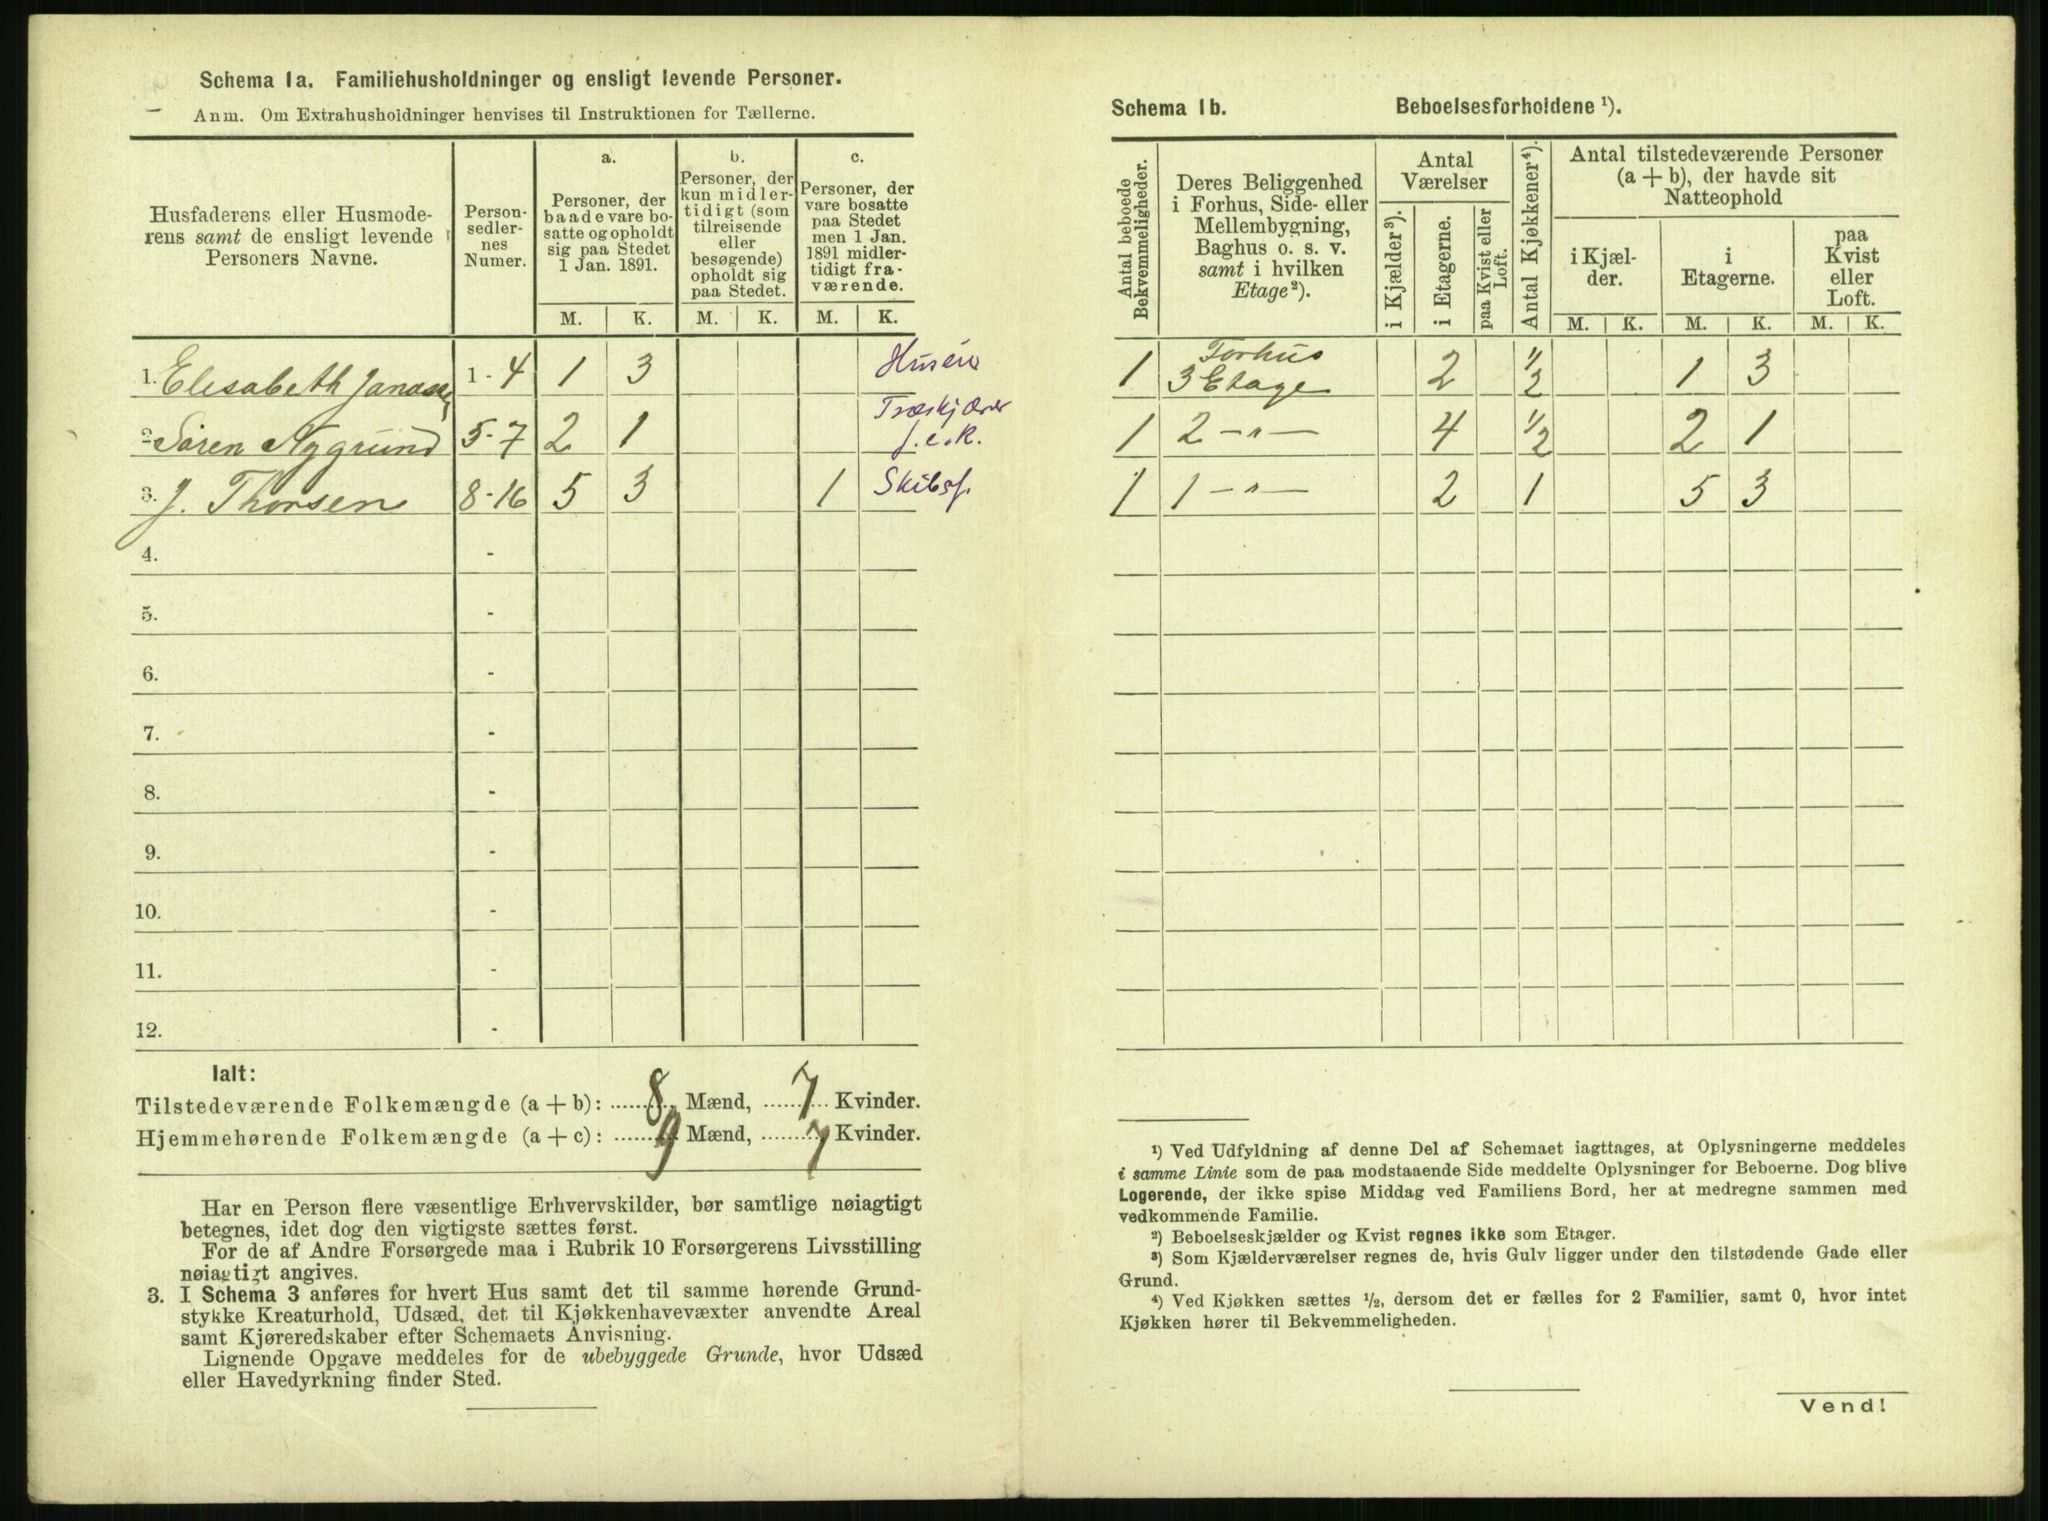 Schema 1a. Familiehusholdninger og ensligt levende Personer.
Anm. Om Extrahusholdninger henvises til Instruktionen for Tællerne.
Husfaderens eller Husmode-
rens samt de ensligt levende
Personers Navne.
Person-
sedler-
nes
Numer.
a.
Personer, der
baade vare bo-
satte og opholdt
sig paa Stedet
1 Jan. 1891.
b.
Personer, der
kun midler-
tidigt (som
tilreisende
eller
besøgende)
opholdt sig
paa Stedet.
c.
Personer, der
vare bosatte
paa Stedet
men 1 Jan.
1891 midler-
tidigt fra-
værende.
M. K. M. K. M. K.
1. Elisabeth 1 - 4 1 3
2 Søren Nygrund 5 - 7 2 1
3. J. Thorsen 8 - 16 5 3 1 Skibsf.
4. -
5. -
6. -
7. -
8. -
9. -
10. -
11. -
12. -
Ialt:
Tilstedeværende Folkemængde (a + b): 8 Mænd, 7 Kvinder.
Hjemmehørende Folkemængde (a + c): 9 Mænd, 7 Kvinder.
Har en Person flere væsentlige Erhvervskilder, bør samtlige nøiagtigt
betegnes, idet dog den vigtigste sættes først.
For de af Andre Forsørgede maa i Rubrik 10 Forsørgerens Livsstilling
nøiagtigt angives.
3. I Schema 3 anføres for hvert Hus samt det til samme hørende Grund-
stykke Kreaturhold, Udsæd, det til Kjøkkenhavevæxter anvendte Areal
samt Kjøreredskaber efter Schemaets Anvisning.
Lignende Opgave meddeles for de ubebyggede Grunde, hvor Udsæd
eller Havedyrkning finder Sted.
Schema 1b. Beboelsesforholdene ¹).
Antal beboede
Bekvemmeligheder.
Deres Beliggenhed
i Forhus, Side- eller
Mellembygning,
Baghus o. s. v.
samt i hvilken
Etage²).
Antal
Værelser
i Kjælder³).
i Etagerne.
paa Kvist eller
Loft.
Antal Kjøkkener⁴).
Antal tilstedeværende Personer
(a + b), der havde sit
Natteophold
i Kjæl-
der.
i
Etagerne.
paa
Kvist
eller
Loft.
M. K. M. K. M. K.
1 Forhus
3 Etage 2 1/2 1 3
1 2 -"- 4 1/2 2 1
1 1 -"- 2 1 5 3
¹) Ved Udfyldning af denne Del af Schemaet iagttages, at Oplysningerne meddeles
i samme Linie som de paa modstaaende Side meddelte Oplysninger for Beboerne. Dog blive
Logerende, der ikke spise Middag ved Familiens Bord, her at medregne sammen med
vedkommende Familie.
²) Beboelseskjælder og Kvist regnes ikke som Etager.
³) Som Kjælderværelser regnes de, hvis Gulv ligger under den tilstødende Gade eller
Grund.
⁴) Ved Kjøkken sættes 1/2, dersom det er fælles for 2 Familier, samt 0, hvor intet
Kjøkken hører til Bekvemmeligheden.
Vend!